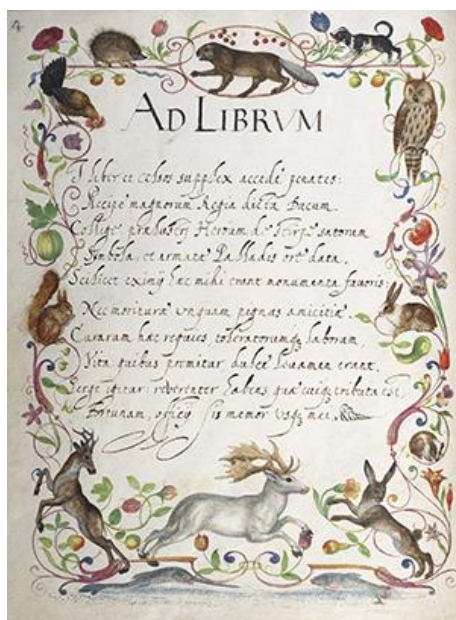 AD LIBRVM
I liber et celsos supplex accede penates:
Accipe magnorum Regia dicta Ducum.
Collige præIustris Heroum de stirpe satorum
Symbola, et armatæ Palladis ore data.
Scilicet eximij hæc mihi erant monumenta fauoris:
Nec moritura unquam pignas amicitiæ
Curarum hæc requies, toleratorumq3 laborum,
Vita quibus premitur dulce leuamen erant.
Perge igitur: reuerenter habens, quæ cuiq3 tributa est,
Fortunam, officij sis memor usq3 mei.